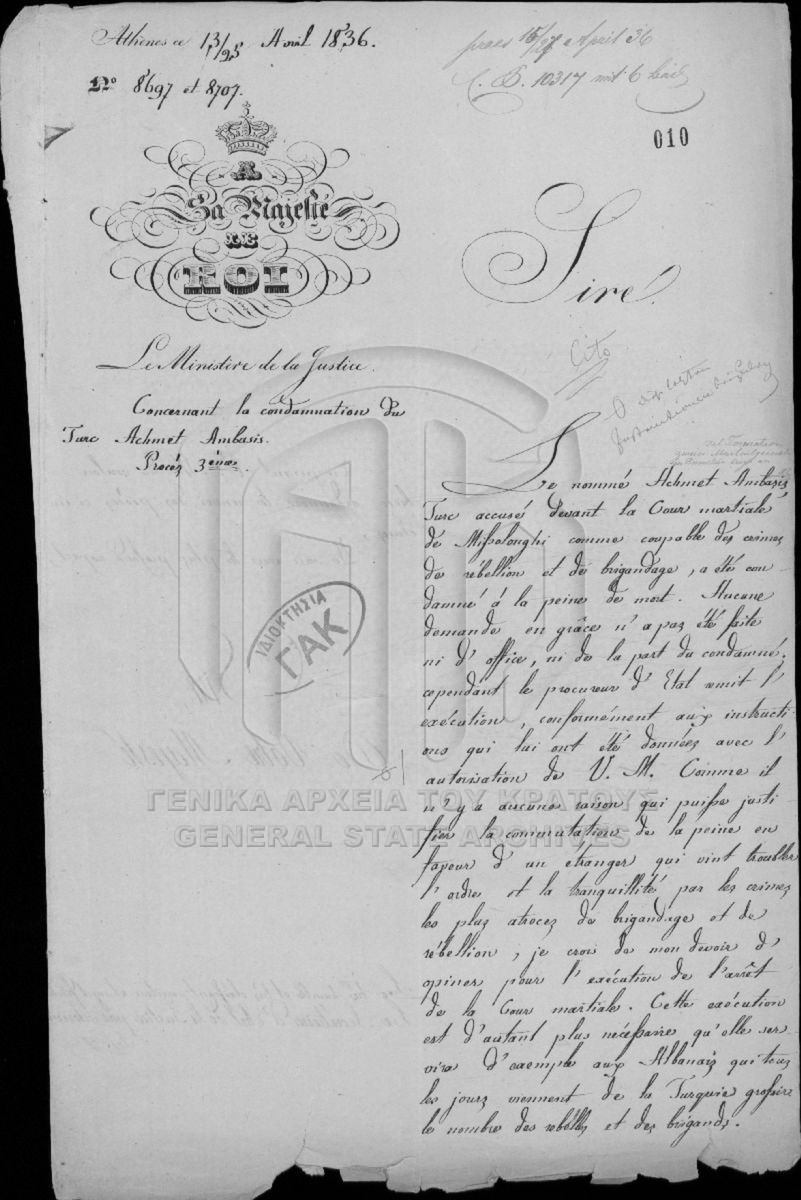 Athènes ce 13/25 Avril 1836.
N° 8697 et 8707.
praes 15/27 April 36
C. B. 10317 mit 6 Beil
010
A
Sa Majesté
LE
ROI
Sire!
Le Ministère de la Justice.
Concernant la condamnation du
Turc Achmet Ambasis.
Procés 3ème.
Cito
Le nommé Achmet Ambasis
Turc accusé devant la Cour martiale
de Missolonghi comme coupable des crimes
de rébellion et de brigandage, a été con
damné à la peine de mort. Aucune
demande en grâce n'a pas été faite
ni d'office, ni de la part du condamné.
cependant le procureur d'Etat remit l'
exécution, conformément aux instructi
ons qui lui ont été données avec l'
autorisation de V. M. Comme il
n'y a aucune raison qui puisse justi
fier la commutation de la peine en
faveur d'un étranger qui vint troubler
l'ordre et la tranquillité par les crimes
les plus atroces de brigandage et de
rébellion, je crois de mon devoir d'
opiner pour l'exécution de l'arrêt
de la Cour martiale. Cette exécution
est d'autant plus nécessaire qu'elle ser
vira d'exemple aux Albanais qui tous
les jours viennent de la Turquie grossir
le nombre des rébelles et des brigands.
ΙΔΙΟΚΤΗΣΙΑ
ΓΑΚ
ΓΕΝΙΚΑ ΑΡΧΕΙΑ ΤΟΥ ΚΡΑΤΟΥΣ
GENERAL STATE ARCHIVES